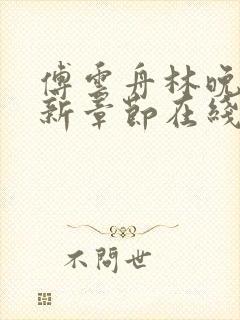 傅雲舟林晚
新章節在綫
不問世